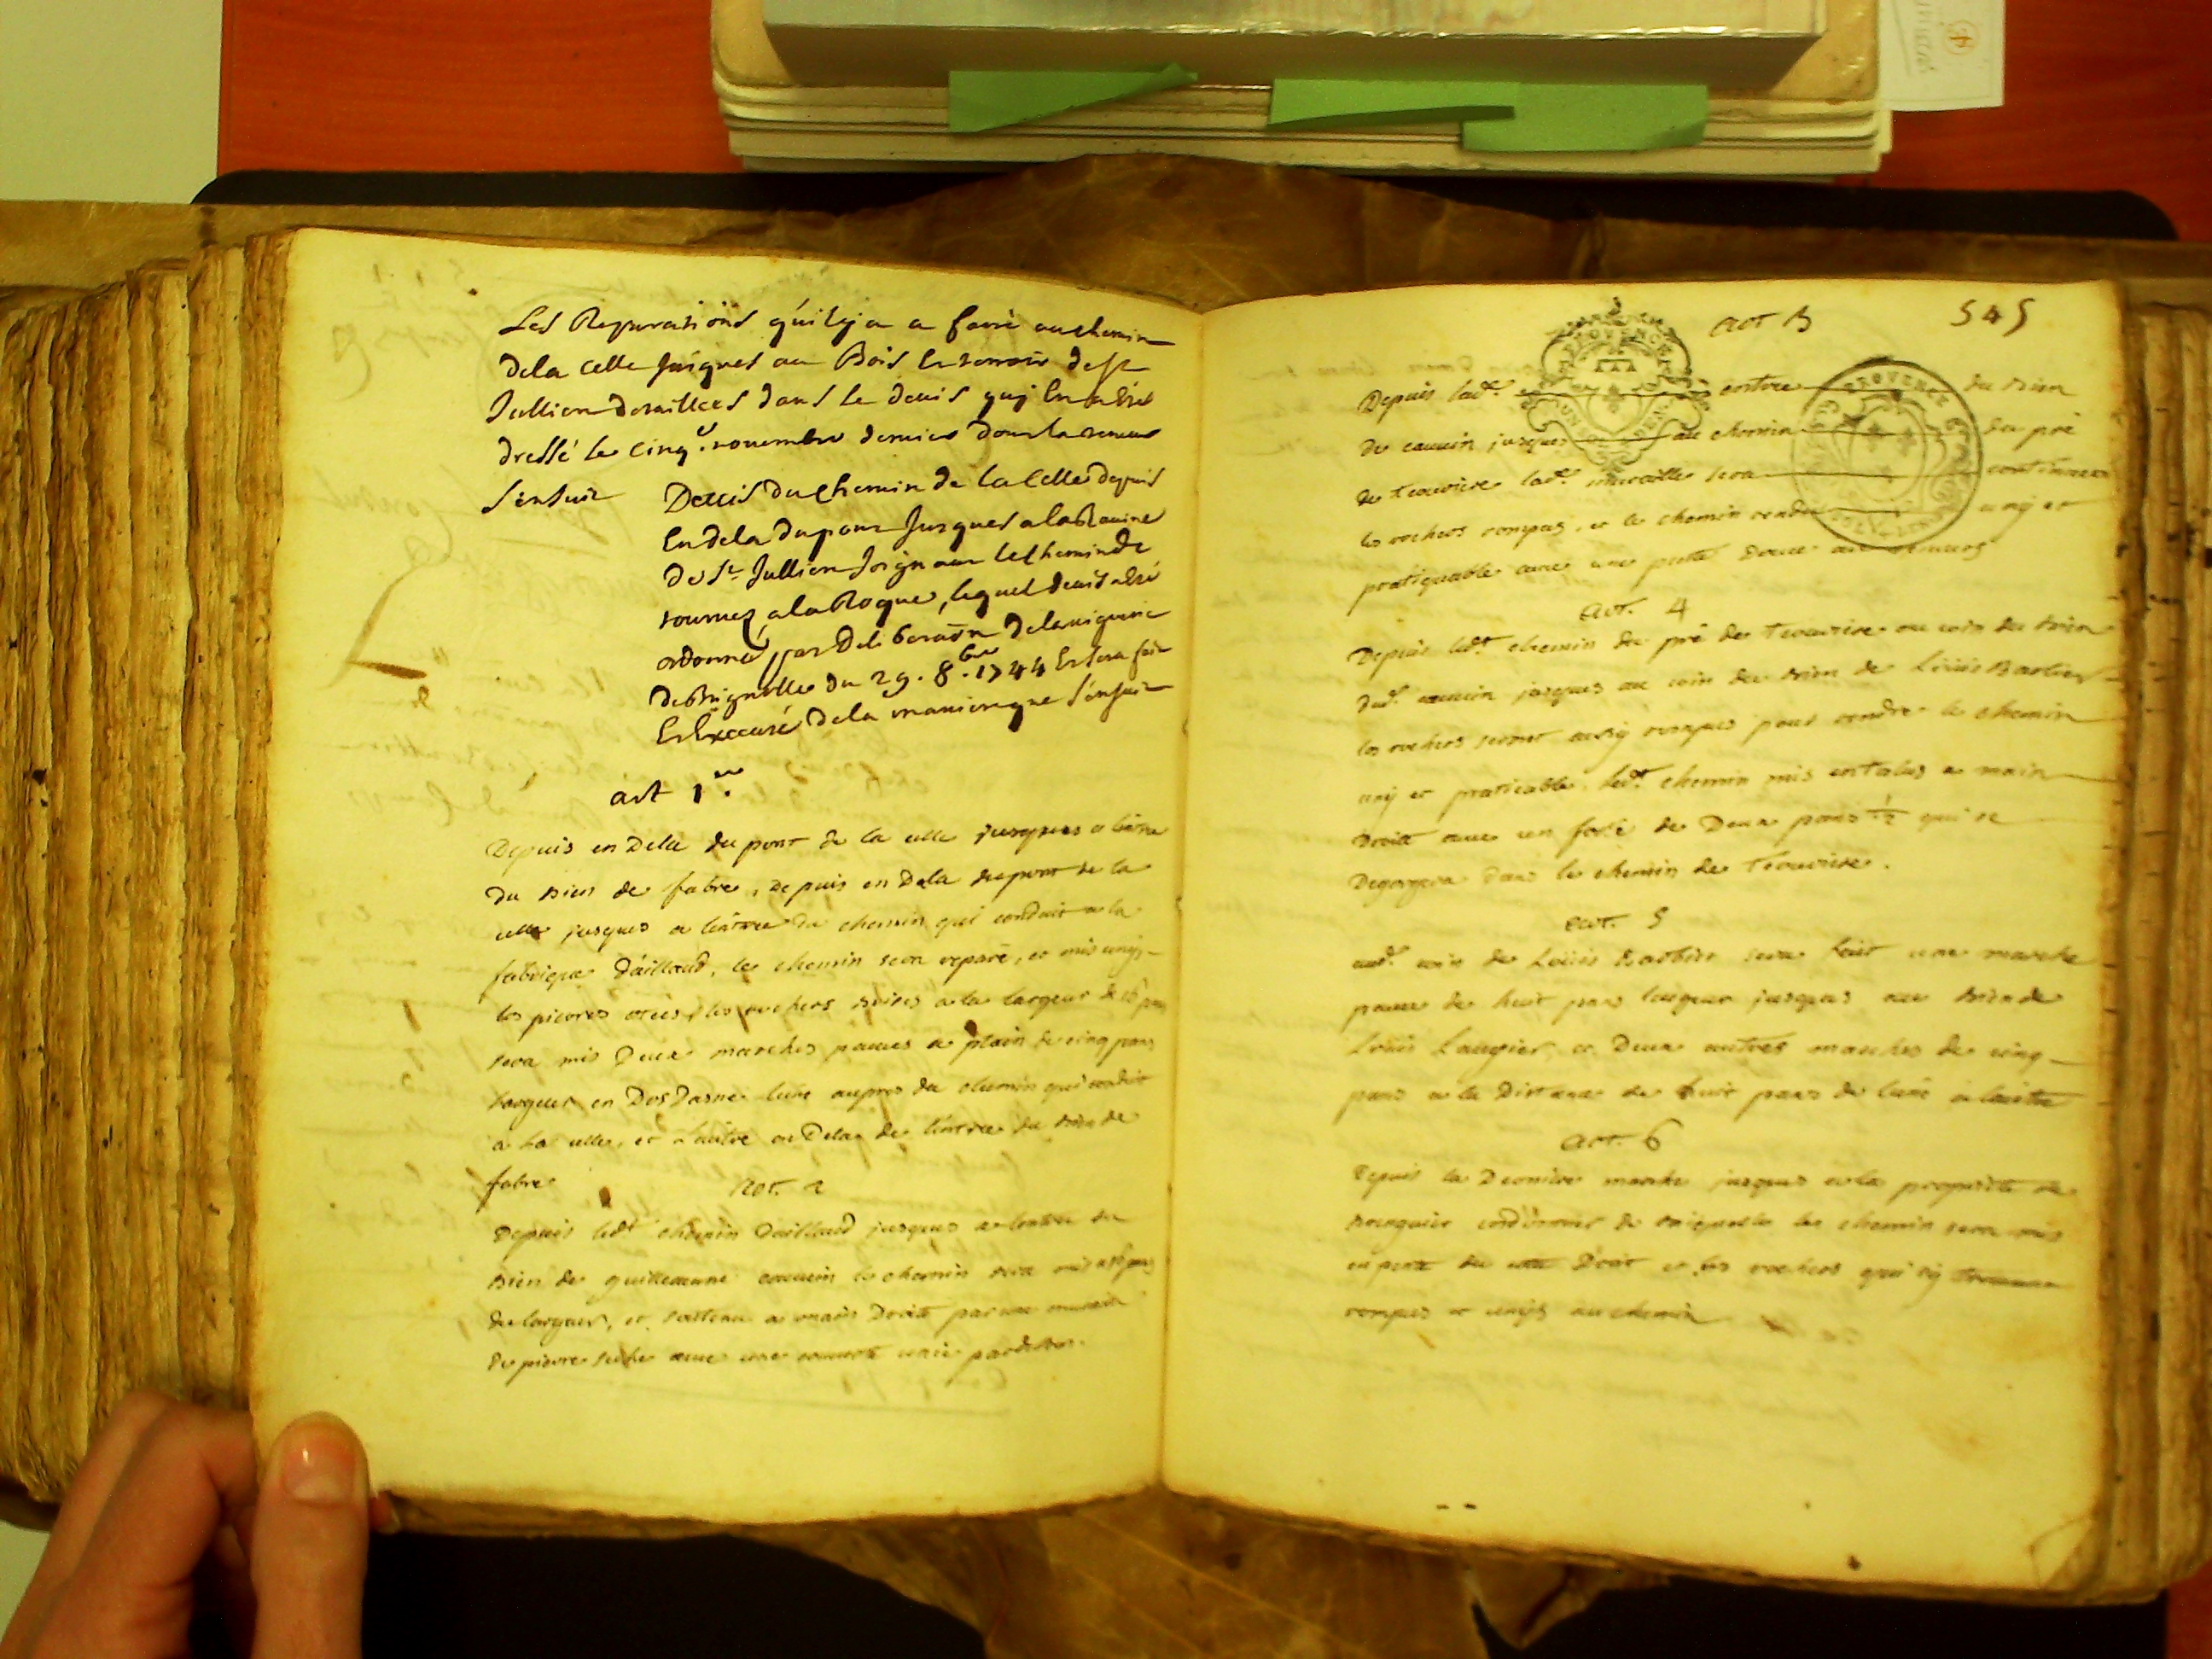 Les Reparations qu'il y a a faire au chemin
de la Celle jusques au Bois le terroir de St
Jullien detaillees dans le devis quj en a été
dressé le cinq.e novembre dernier dont la teneur
s'ensuit
Devis du chemin de la Celle depuis
en dela du pont jusques a la Ravine
de St Jullien joignant le chemin de
tournez a la Roque, lequel devis a été
ordonné par Deliberaõn de la viguerie
de Brignolles du 29. 8.bre 1744 et sera fait
et Executé de la maniere que s'ensuit
art 1.er
Depuis en Dela du pont de la celle jusques a l'entrée
du bien de fabre, Depuis en Dela du pont de la
celle jusques a l'entrée du chemin qui conduit a la
fabrique d'aillaud, le chemin sera reparé, et mis unij
les pierres otées, les rochers brisés a la largeur de 16 pans
sera mis Deux marches pavées a plain de cinq pans
largeur en Dos Dasne l'une aupres du chemin qui conduit
a La celle, et l'autre en Dela de l'entrée du bien de
fabre
Art. 2
Depuis led.t chemin Daillaud jusques a l'entrée du
bien de guilleaume cauvin le chemin sera mis a 16 pans
de largeur, et soutenu a main Droite par une muraille
de pierre seche avec une couverte
art 3
545
PROVENCE
Depuis lad.e entrée du bien
de cauvin jusques au chemin du pré
de lad.e muraille sera continuée
les rochers rompus, et le chemin rendu unij et
pratiquable avec une pente Douce
art. 4
Depuis led.t chemin du pré de au coin du bien
dud. cauvin jusques au coin du bien de Loüis Barbier
les rochers seront aussy rompus pour rendre le chemin
unij et praticable. led.t chemin mis en talus a main
Droite avec un fossé de Deux pans 1/2 qui se
Degorgera dans le chemin de
art. 5
aud. coin de Loüis Barbier sera fait une marche
pavée de huit pans largeur jusques au bien de
Loüis Laugier, et Deux autres marches de cinq
pans a la Distance de huit pans de l'une a l'autre
art. 6
Depuis la Derniere marche jusques a la proprieté de
cordonnier de brignolle le chemin sera mis
en pente du coté Droit et les rochers qui s'y trouveront
rompus et unijs au chemin